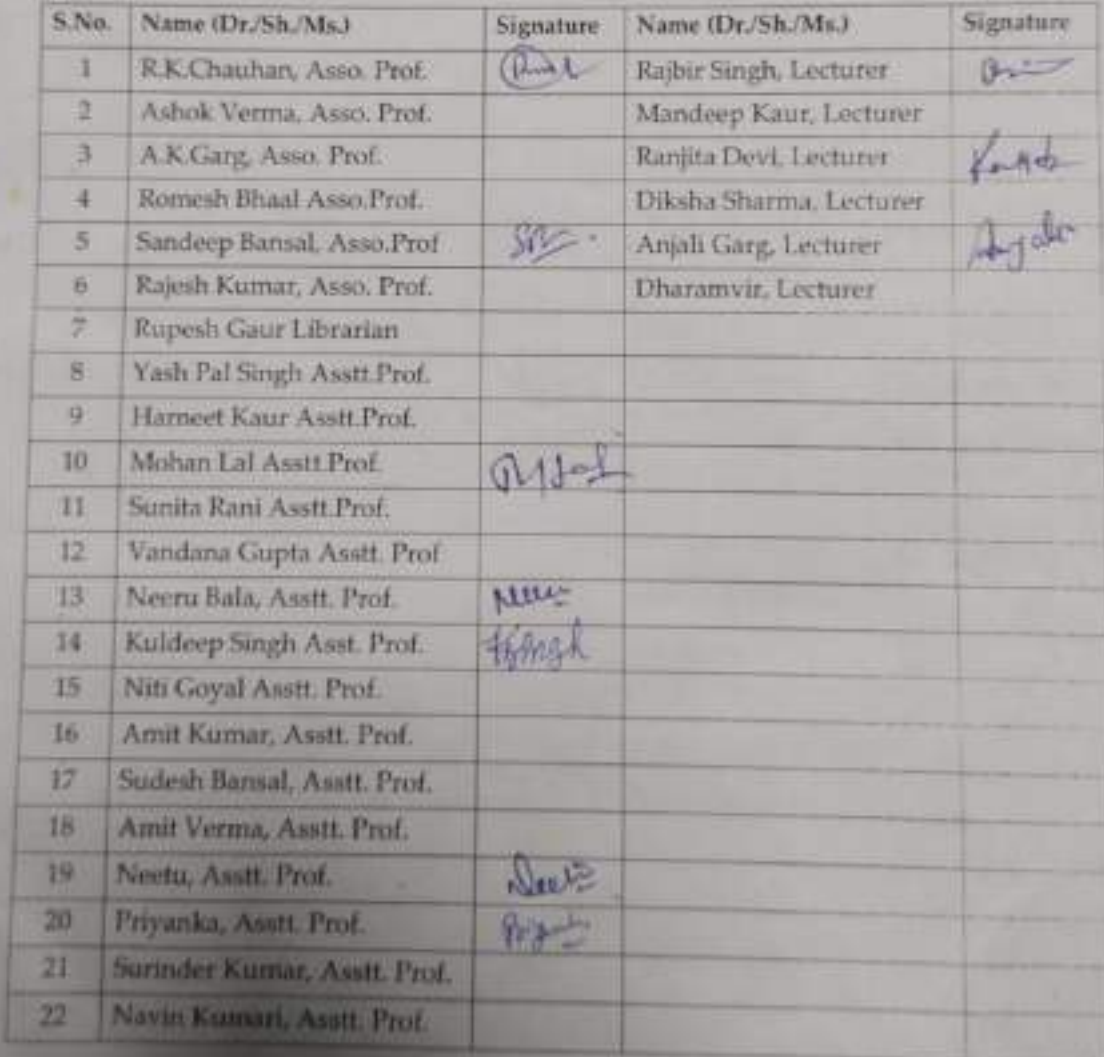 S.No. Name (Dr./Sh./Ms.) Signature Name (Dr./Sh./Ms.) Signature
1 R.K.Chauhan, Asso. Prof. Rajbir Singh, Lecturer
2 Ashok Verma, Asso. Prof. Mandeep Kaur, Lecturer
3 A.K.Garg, Asso. Prof. Ranjita Devi, Lecturer
4 Romesh Bhaal Asso.Prof. Diksha Sharma, Lecturer
5 Sandeep Bansal, Asso.Prof Anjali Garg, Lecturer
6 Rajesh Kumar, Asso. Prof. Dharamvir, Lecturer
7 Rupesh Gaur Librarian
8 Yash Pal Singh Asstt.Prof.
9 Harneet Kaur Asstt.Prof.
10 Mohan Lal Asstt.Prof.
11 Sunita Rani Asstt.Prof.
12 Vandana Gupta Asstt. Prof
13 Neeru Bala, Asstt. Prof. Neeru
14 Kuldeep Singh Asst. Prof.
15 Niti Goyal Asstt. Prof.
16 Amit Kumar, Asstt. Prof.
17 Sudesh Bansal, Asstt. Prof.
18 Amit Verma, Asstt. Prof.
19 Neetu, Asstt. Prof. Neetu
20 Priyanka, Asstt. Prof.
21 Surinder Kumar, Asstt. Prof.
22 Navin Kumari, Asstt. Prof.